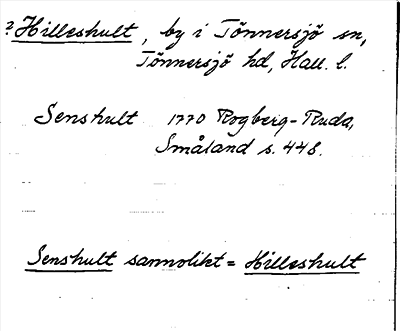 ? Hilleshult, by i Tönnersjö sn,
Tönnersjö hd, Hall. l.
Senshult 1770 Rogberg-Ruda,
Småland s. 448.
Senshult sannolikt = Hilleshult